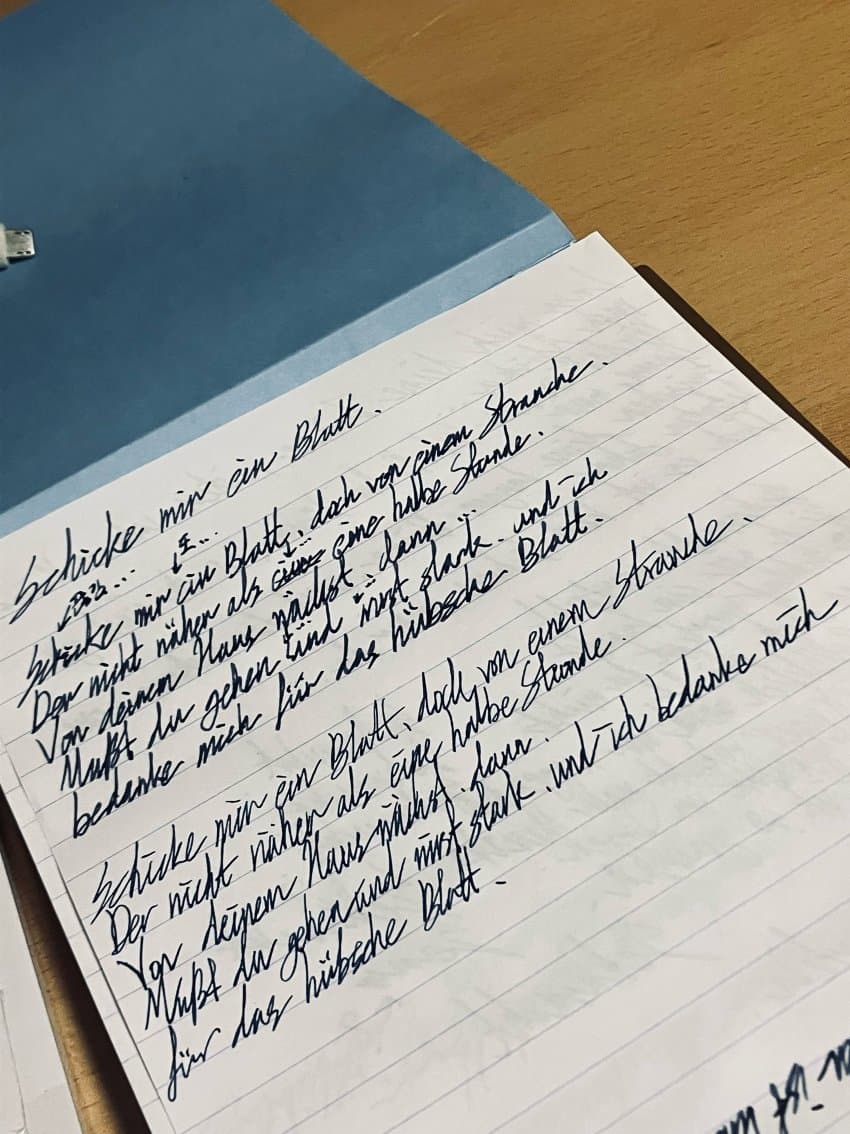 Schicke mir ein Blatt.
Schicke mir ein Blatt, doch von einem Strauche.
Der nicht nähen als eine halbe Stunde.
Von deinem Haus wächst, dann
Mußt du gehen und wirst stark, und ich
bedanke mich für das hübsche Blatt.
Schicke mir ein Blatt, doch von einem Strauche.
Der nicht nähen als eine halbe Stunde.
Von deinem Haus wächst, dann.
Mußt du gehen und wirst stark, und ich bedanke mich
für das hübsche Blatt.